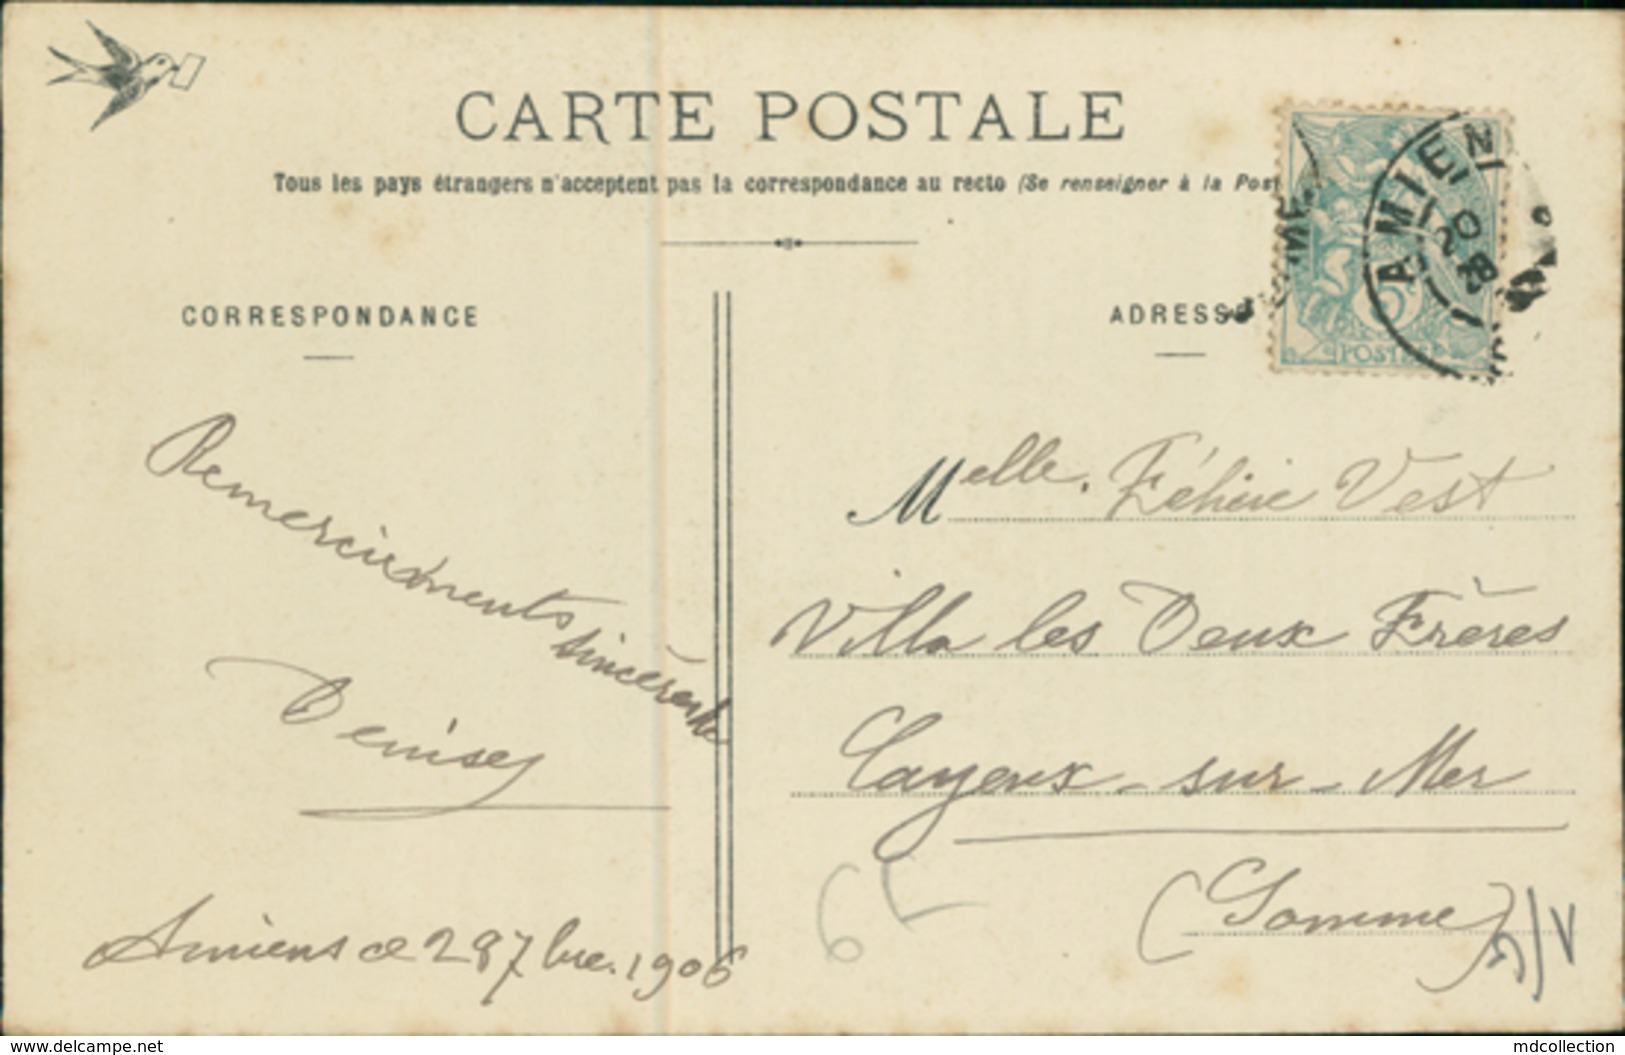 CARTE POSTALE
Tous les pays étrangers n'acceptent pas la correspondance au recto (Se renseigner à la Post
CORRESPONDANCE
ADRESSE
AMIEN
20
28
5
POSTE
Remerciements
sincères
Denise
Amiens ce 28 7bre. 1906
Melle. Vest
Villa les Deux Frères
Cayeux-sur-Mer
(Somme)
www.delcampe.net
mdcollection